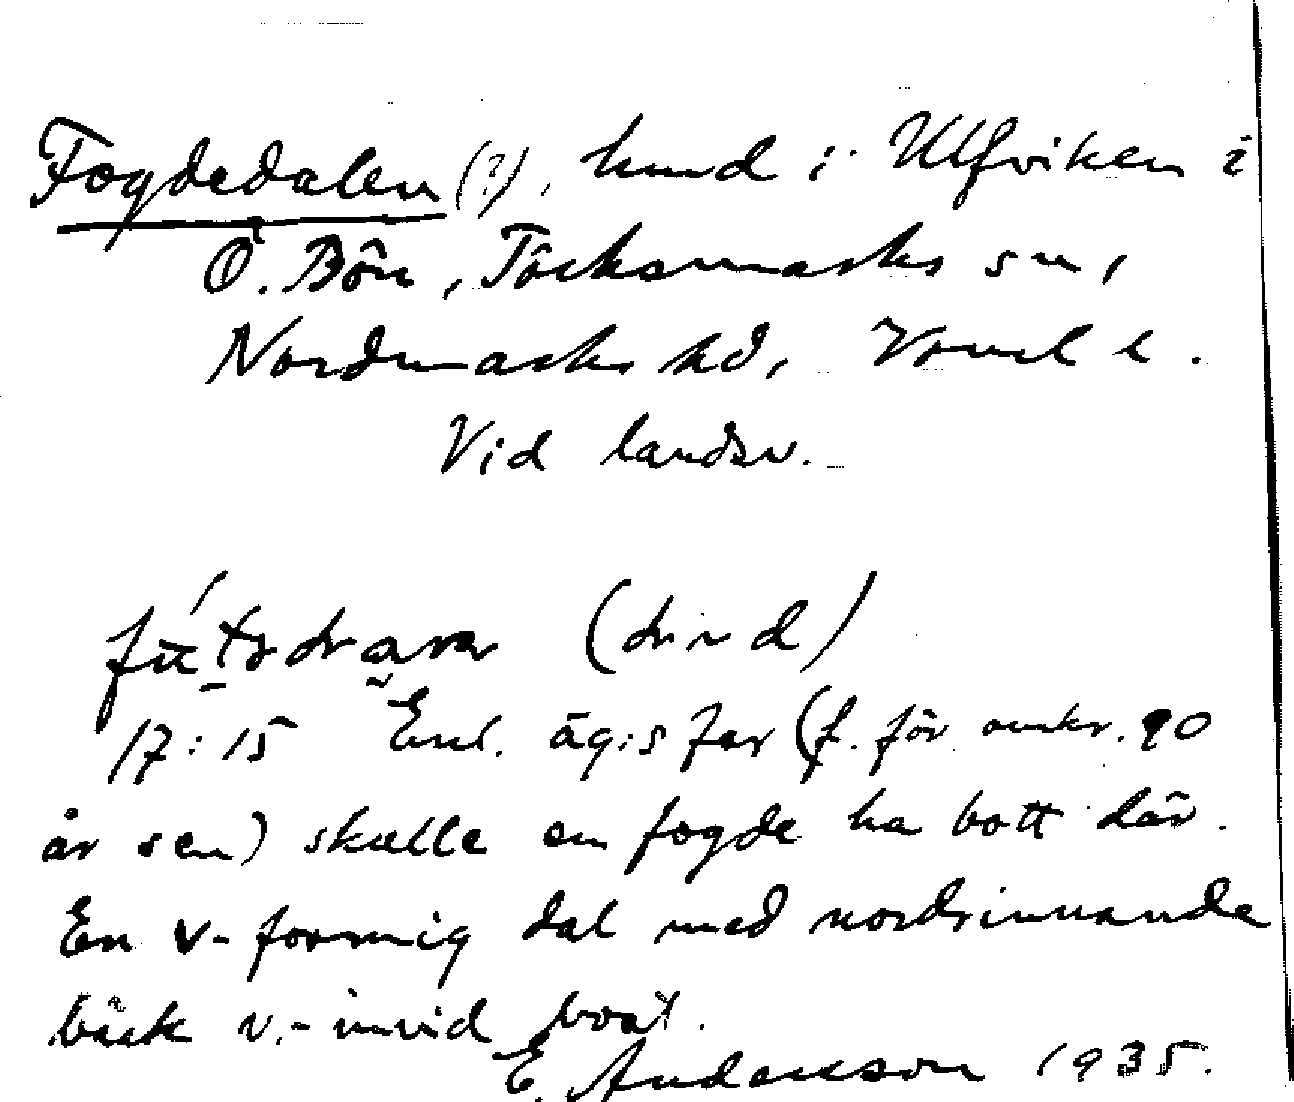 Fogdedalen (?), hmd i Ulfviken i
Ö. Bön, Töcksmarks sn,
Nordmarks hd, Värml l.
Vid landsv.
17:15 Enl. äg:s far (f. för omkr. 90
år sen) skulle en fogde ha bott där.
En v-formig dal med nordrinnande
bäck v.-invid bost.
E. Andersson 1935.